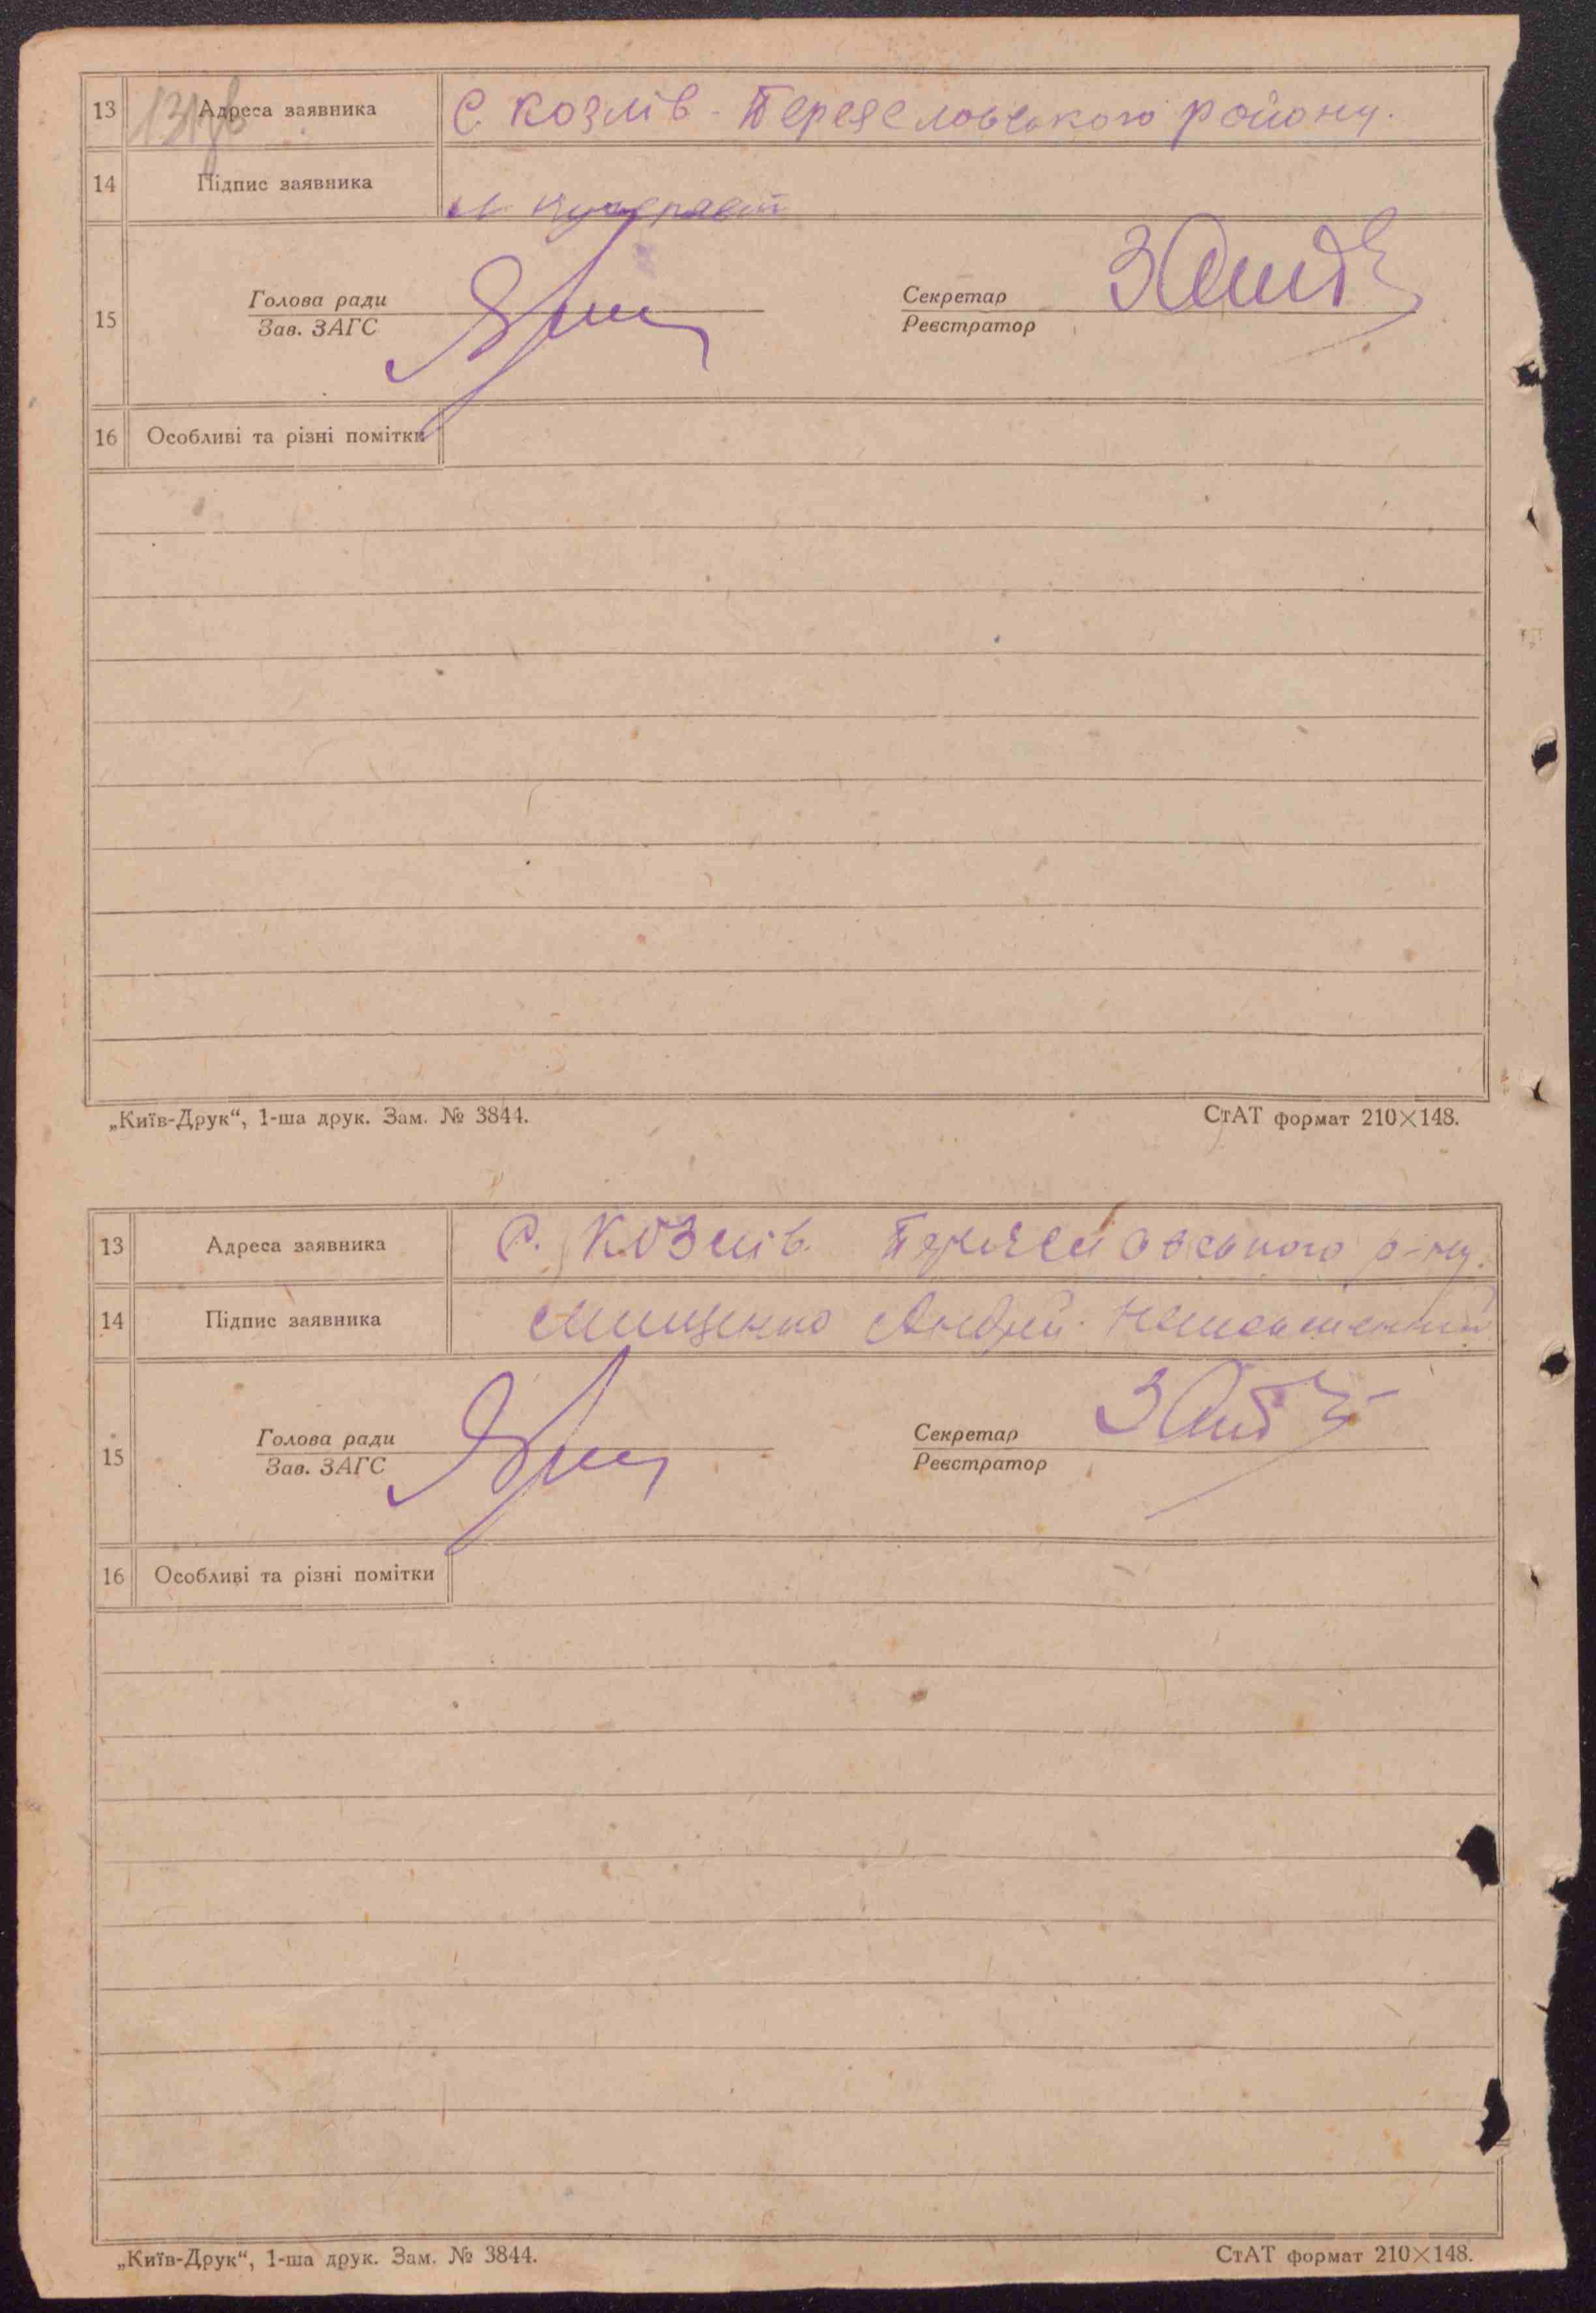 13 Адреса заявника С Козлів - Переяславського району.
14 Підпис заявника
15 Голова ради Секретар
Зав. ЗАГС Реєстратор
16 Особливі та різні помітки
„Київ-Друк“, 1-ша друк. Зам. № 3844. СтАТ формат 210×148.
13 Адреса заявника С. Козлів Переяславського р-ну.
14 Підпис заявника Мищенко Андрей
15 Голова ради Секретар
Зав. ЗАГС Реєстратор
16 Особливі та різні помітки
„Київ-Друк“, 1-ша друк. Зам. № 3844. СтАТ формат 210×148.